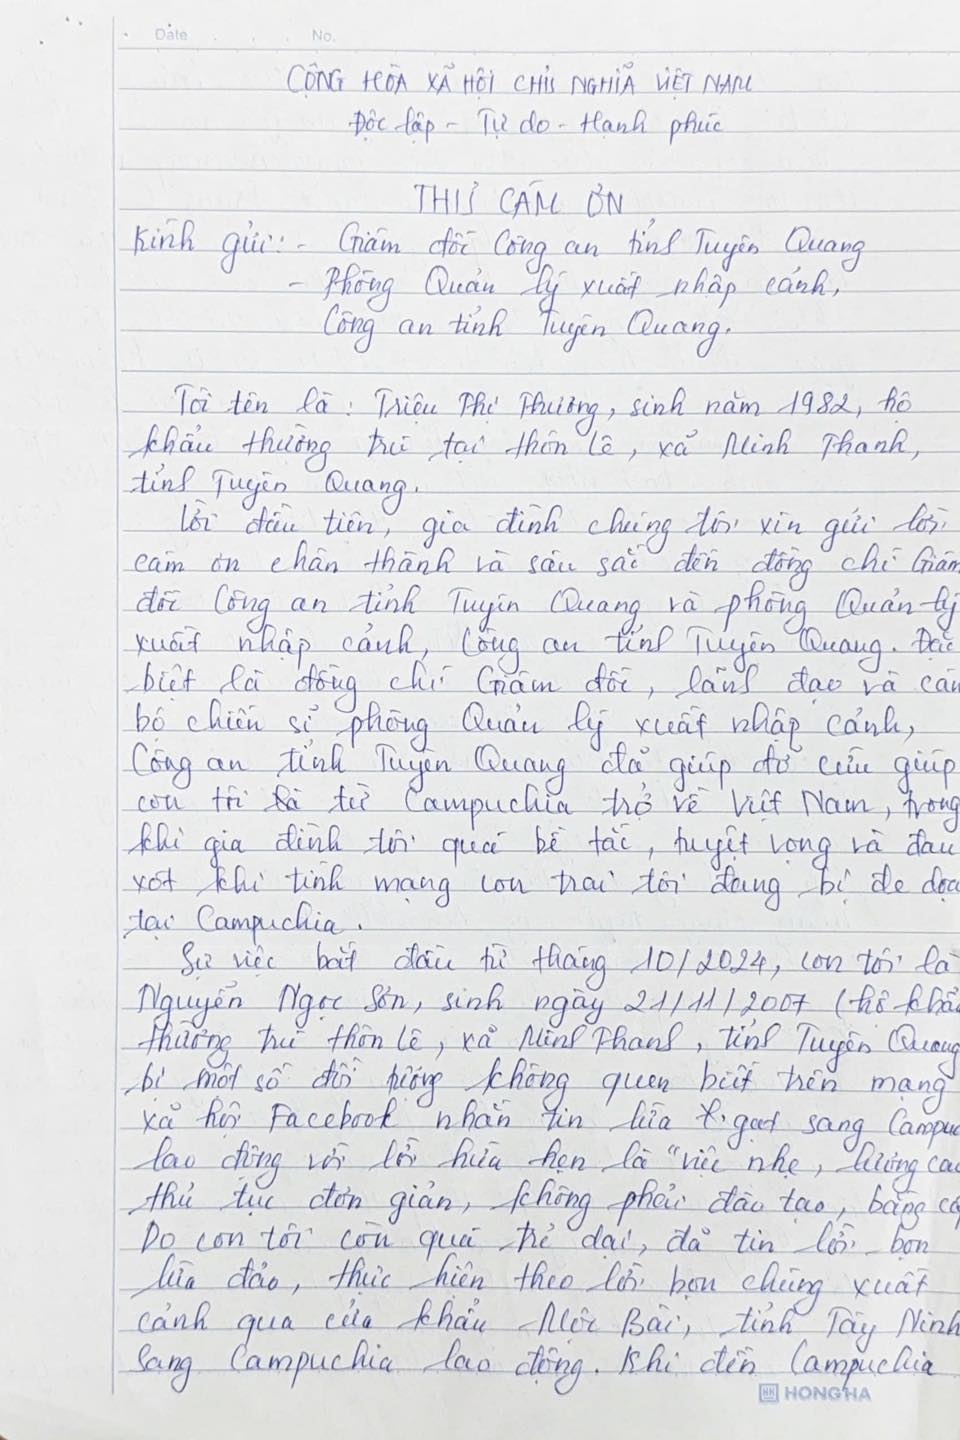 Date No.
CỘNG HÒA XÃ HỘI CHỦ NGHĨA VIỆT NAM
Độc lập - Tự do - Hạnh phúc
THƯ CẢM ƠN
Kính gửi: - Giám đốc Công an tỉnh Tuyên Quang
- Phòng Quản lý xuất nhập cảnh,
Công an tỉnh Tuyên Quang.
Tôi tên là: Triệu Thị Thương, sinh năm 1982, hộ
khẩu thường trú tại thôn Lê, xã Minh Thanh,
tỉnh Tuyên Quang.
Lời đầu tiên, gia đình chúng tôi xin gửi lời
cảm ơn chân thành và sâu sắc đến đồng chí Giám
đốc Công an tỉnh Tuyên Quang và phòng Quản lý
xuất nhập cảnh, Công an tỉnh Tuyên Quang. Đặc
biệt là đồng chí Giám đốc, lãnh đạo và cán
bộ chiến sĩ phòng Quản lý xuất nhập cảnh,
Công an tỉnh Tuyên Quang đã giúp đỡ cứu giúp
con tôi từ Campuchia trở về Việt Nam, trong
khi gia đình tôi quá bế tắc, tuyệt vọng và đau
xót khi tính mạng con trai tôi đang bị đe dọa
tại Campuchia.
Sự việc bắt đầu từ tháng 10/2024, con tôi là
Nguyễn Ngọc Sơn, sinh ngày 21/11/2007 (hộ khẩu
thường trú thôn Lê, xã Minh Thanh, tỉnh Tuyên Quang
bị một số đối tượng không quen biết trên mạng
xã hội Facebook nhắn tin lừa gạt sang Campu
lao động với lời hứa hẹn là "việc nhẹ, lương cao
thủ tục đơn giản, không phải đào tạo, bằng cấ
Do con tôi còn quá trẻ dại, đã tin lời bọn
lừa đảo, thực hiện theo lời bọn chúng xuất
cảnh qua cửa khẩu Mộc Bài, tỉnh Tây Ninh
sang Campuchia lao động. Khi đến Campuchia
HH HONG HA